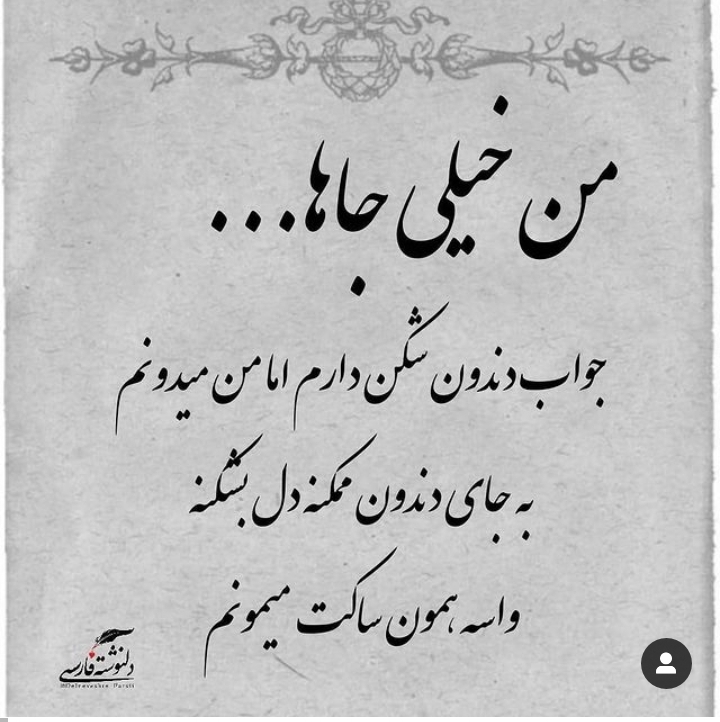 من خیلی جاها...
جواب دندون شکن دارم اما من میدونم
به جای دندون ممکنه دل بشکنه
واسه همون ساکت میمونم
دلنوشته فارسی